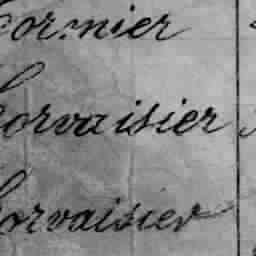 Cormier
Corvaisier
Corvaisier